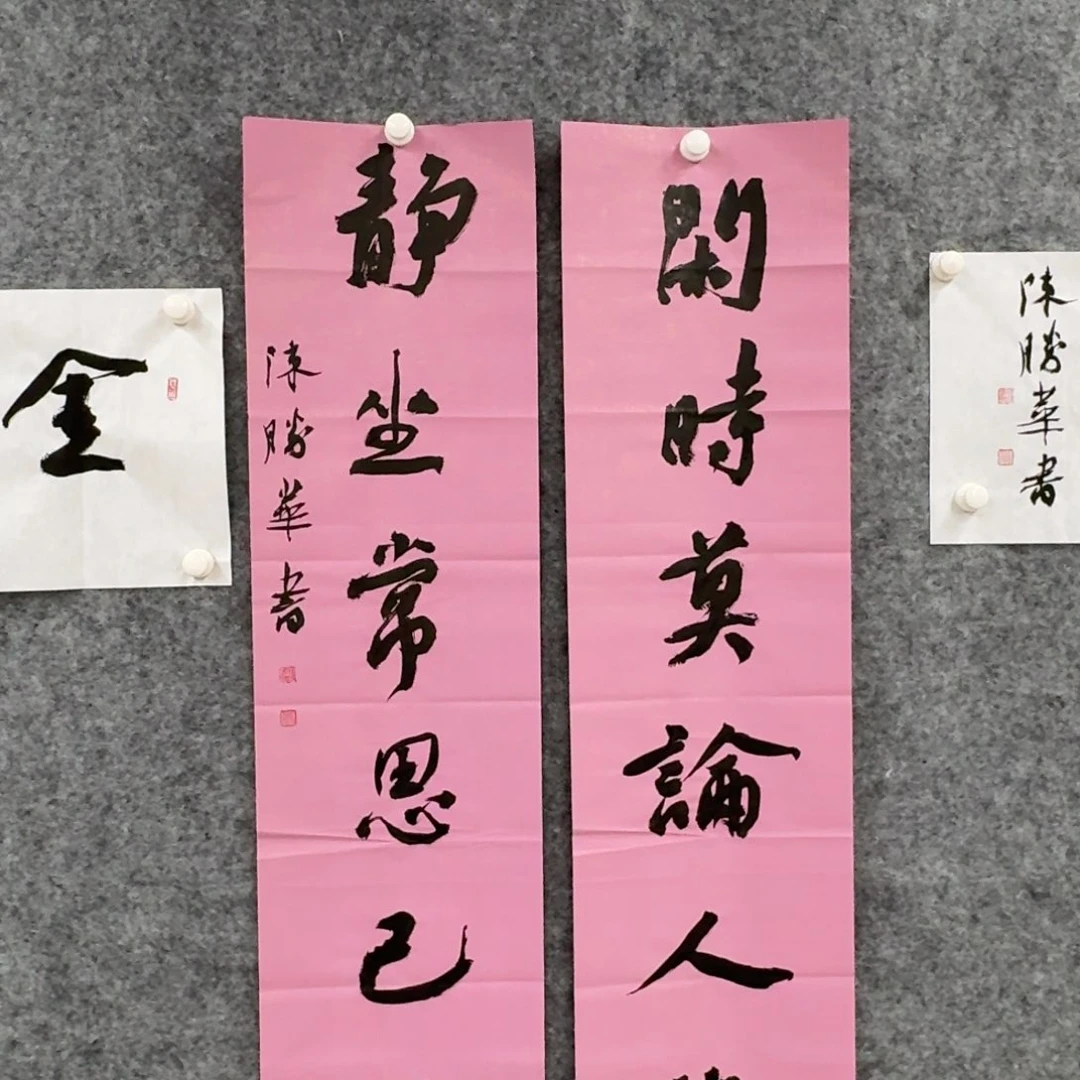 閑時莫論人
靜坐常思己
陳勝華書
金
陳勝華書